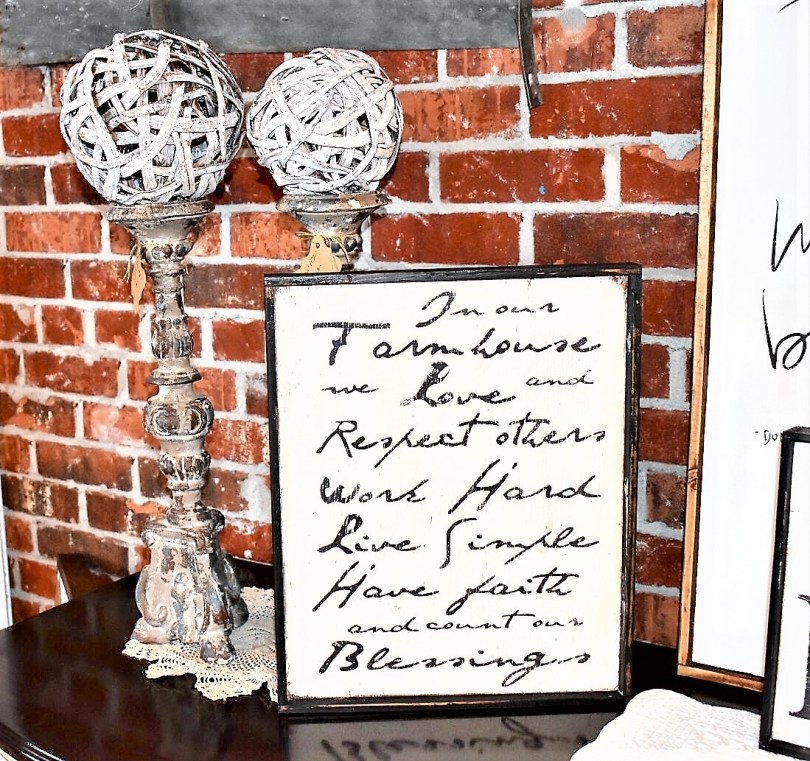 In our
Farmhouse
we Love and
Respect others
Work Hard
Live Simple
Have faith
and count our
Blessings